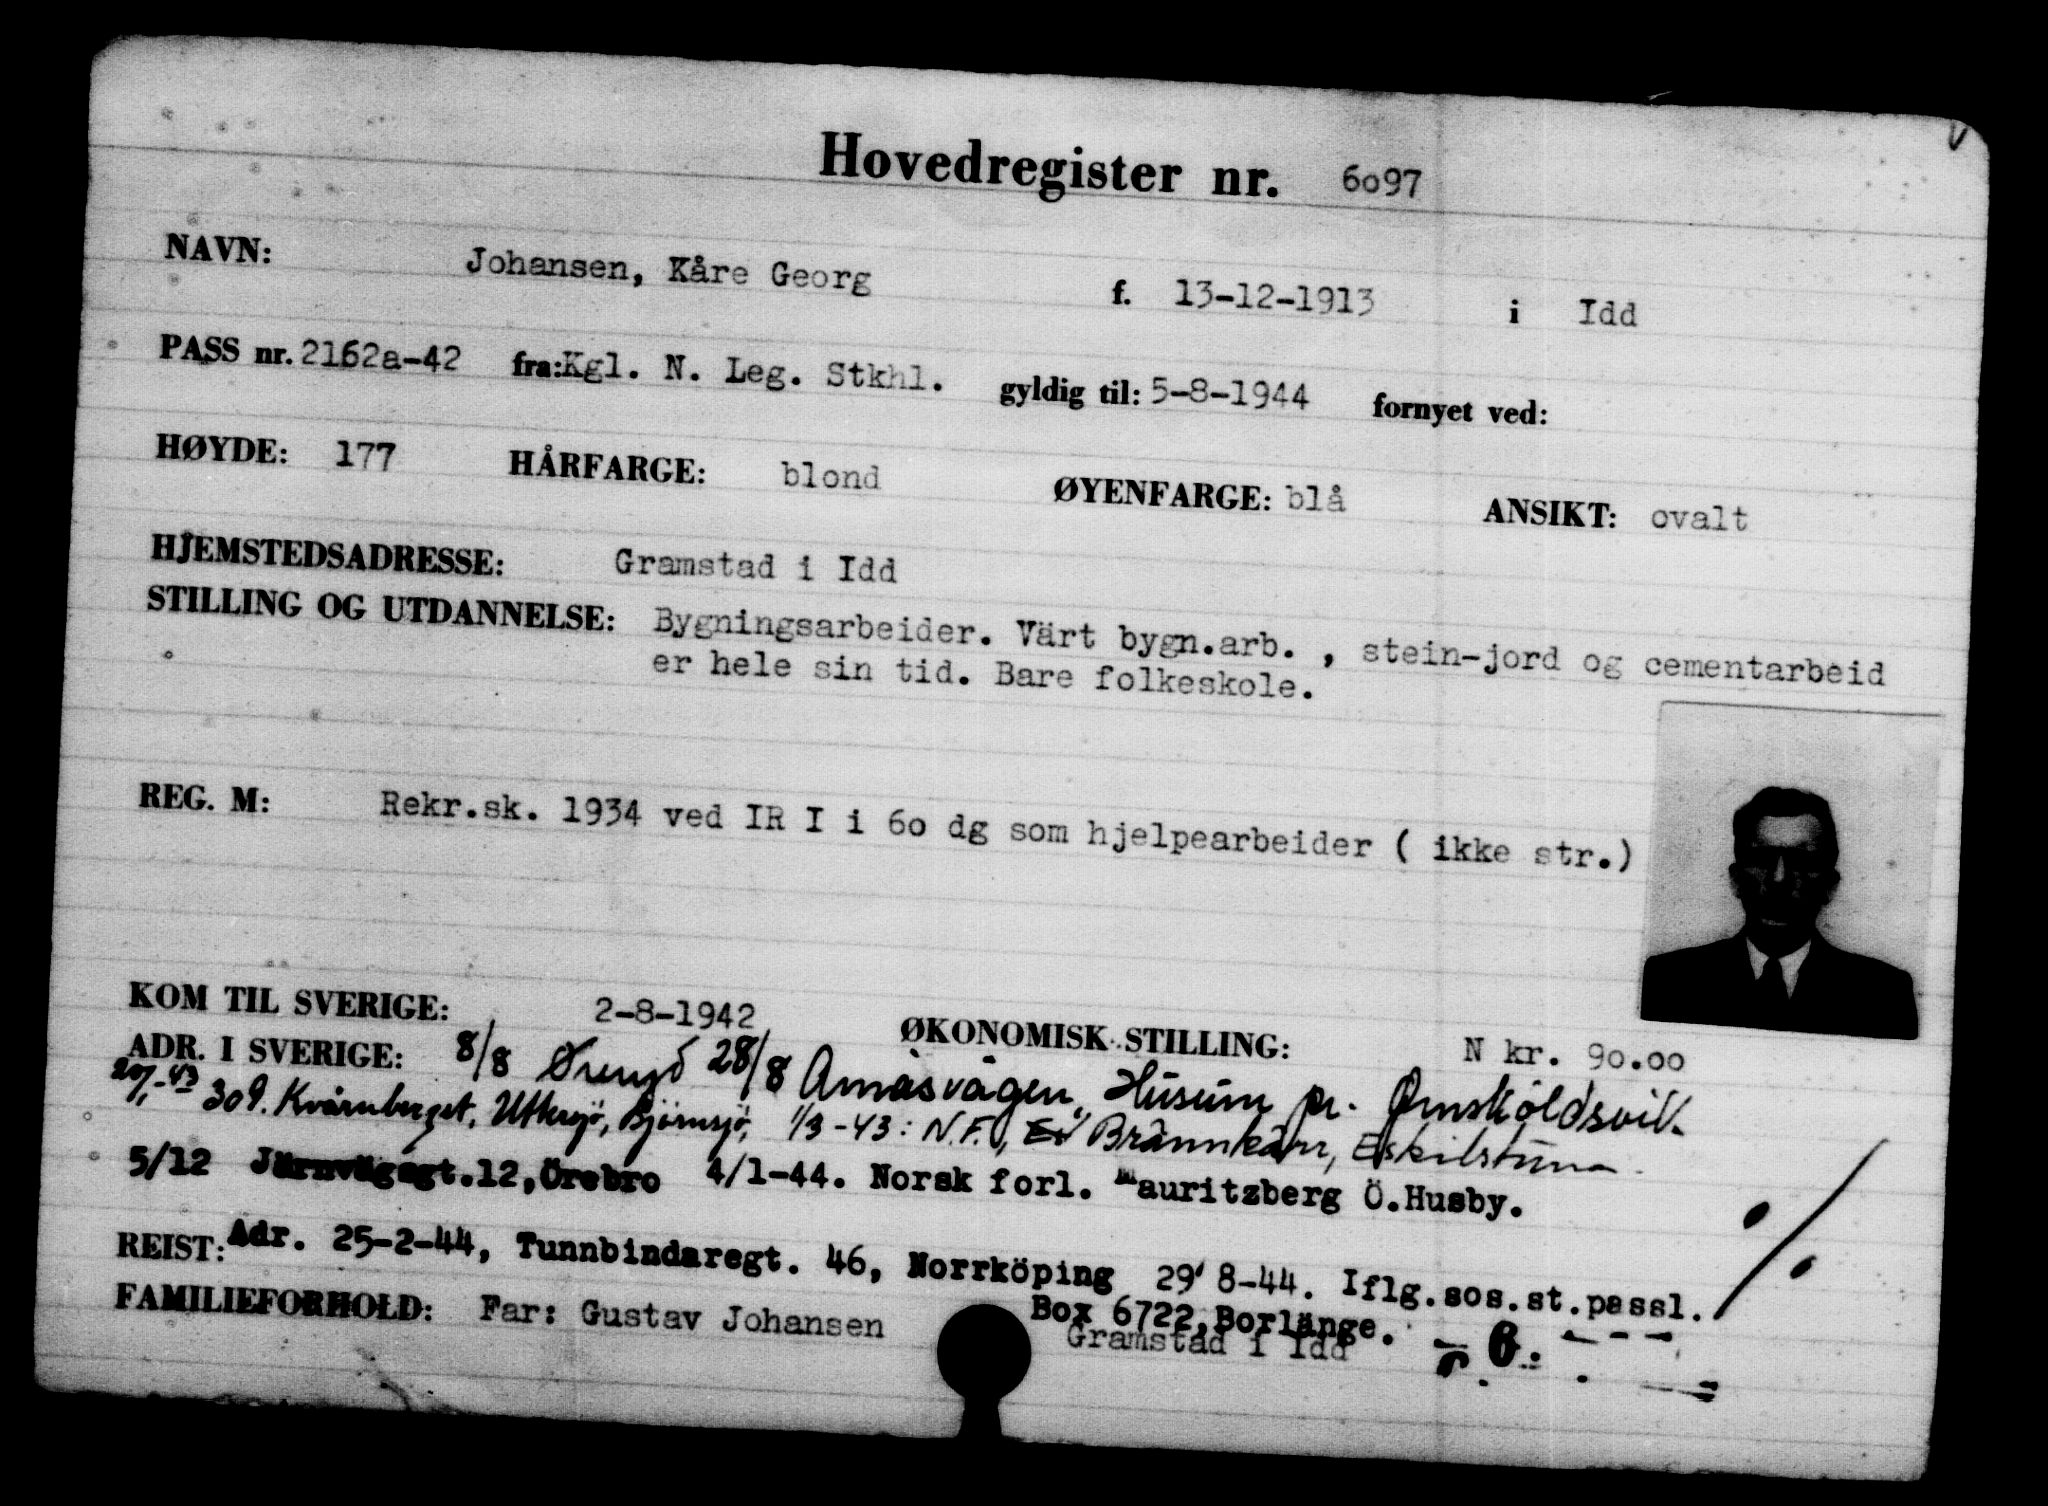 Hovedregister nr. 6o97
NAVN: Johansen, Kåre Georg f. 13-12-1913 i Idd
PASS nr. 2162a-42 fra: Kgl. N. Leg. Stkhl. gyldig til: 5-8-1944 fornyet ved:
HØYDE: 177 HÅRFARGE: blond ØYENFARGE: blå ANSIKT: ovalt
HJEMSTEDSADRESSE: Gramstad i Idd
STILLING OG UTDANNELSE: Bygningsarbeider. Värt bygn.arb. , stein-jord og cementarbeid
er hele sin tid. Bare folkeskole.
REG. M: Rekr.sk. 1934 ved IR I i 6o dg som hjelpearbeider ( ikke str.)
KOM TIL SVERIGE: 2-8-1942 ØKONOMISK STILLING: N kr. 9o.oo
ADR. I SVERIGE: 8/8 Øreryd 28/8 Amåsvägen, Husum pr. Ørnsköldsvik.
309. Kvarnberget, Björnsjö, 1/3-43: N.F., Brännkärr, Eskilstuna.
5/12 Järnvägsgt.12,Örebro 4/1-44. Norsk forl. Mauritzberg Ö.Husby.
REIST: Adr. 25-2-44, Tunnbindaregt. 46, Norrköping 29/8-44. Iflg.sos.st.passl.
Box 6722,Borlänge.
FAMILIEFORHOLD: Far: Gustav Johansen Gramstad i Idd